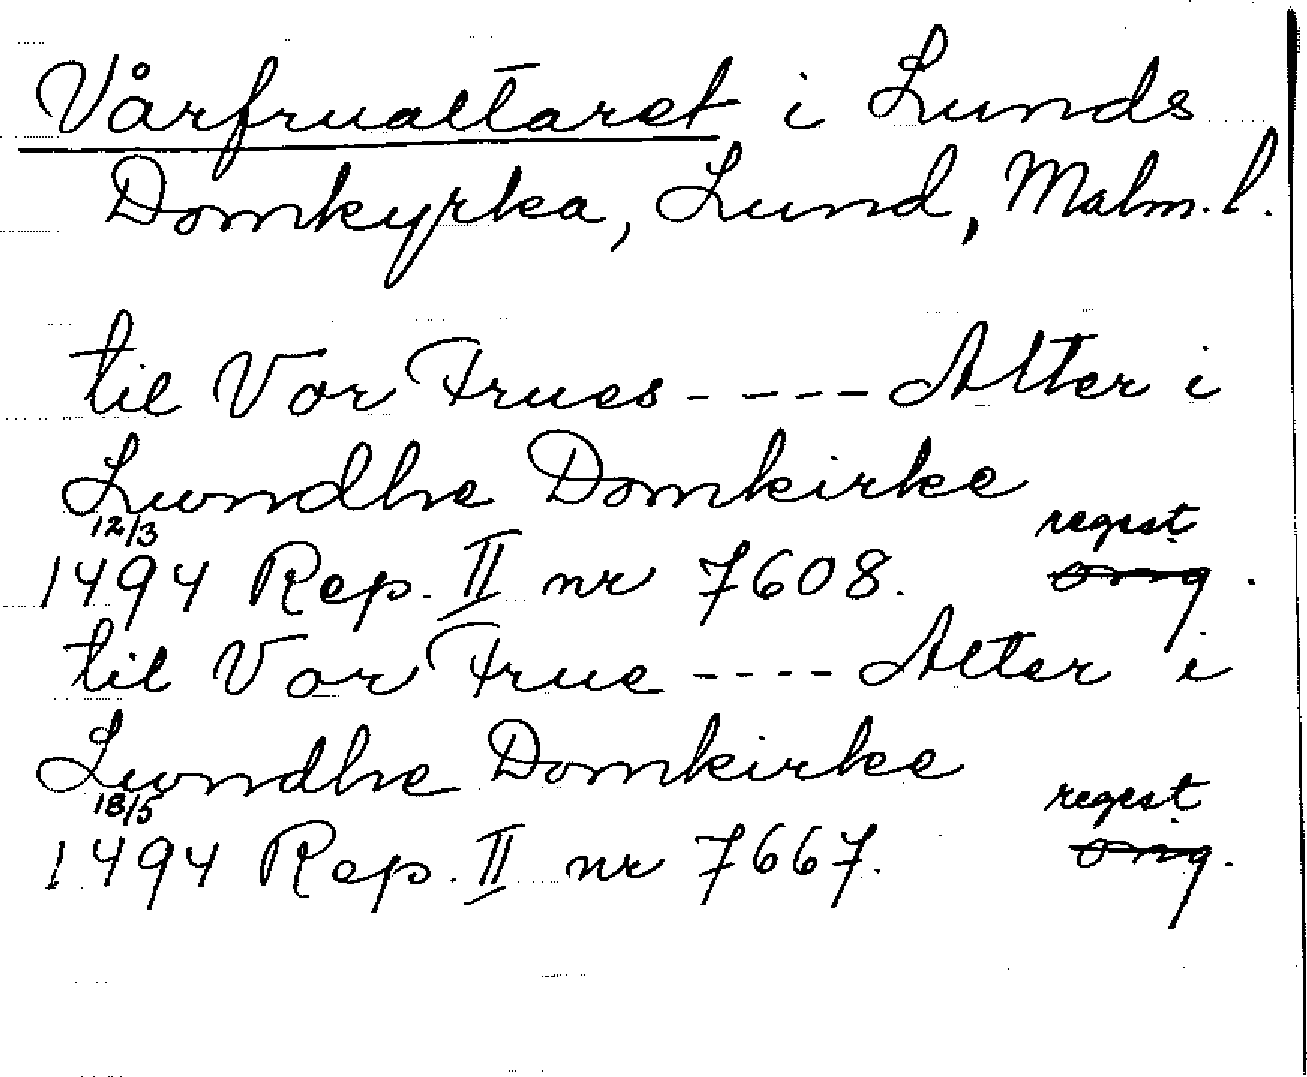 Vårfrualtaret i Lunds
Domkyrka, Lund, Malm. l.
til Vor Frues ---- Alter i
Lundhe Domkirke
12/3 regest
1494 Rep. II nr 7608. orig.
til Vor Frue ---- Alter i
Lundhe Domkirke
18/5 regest
1494 Rep. II nr 7667. orig.